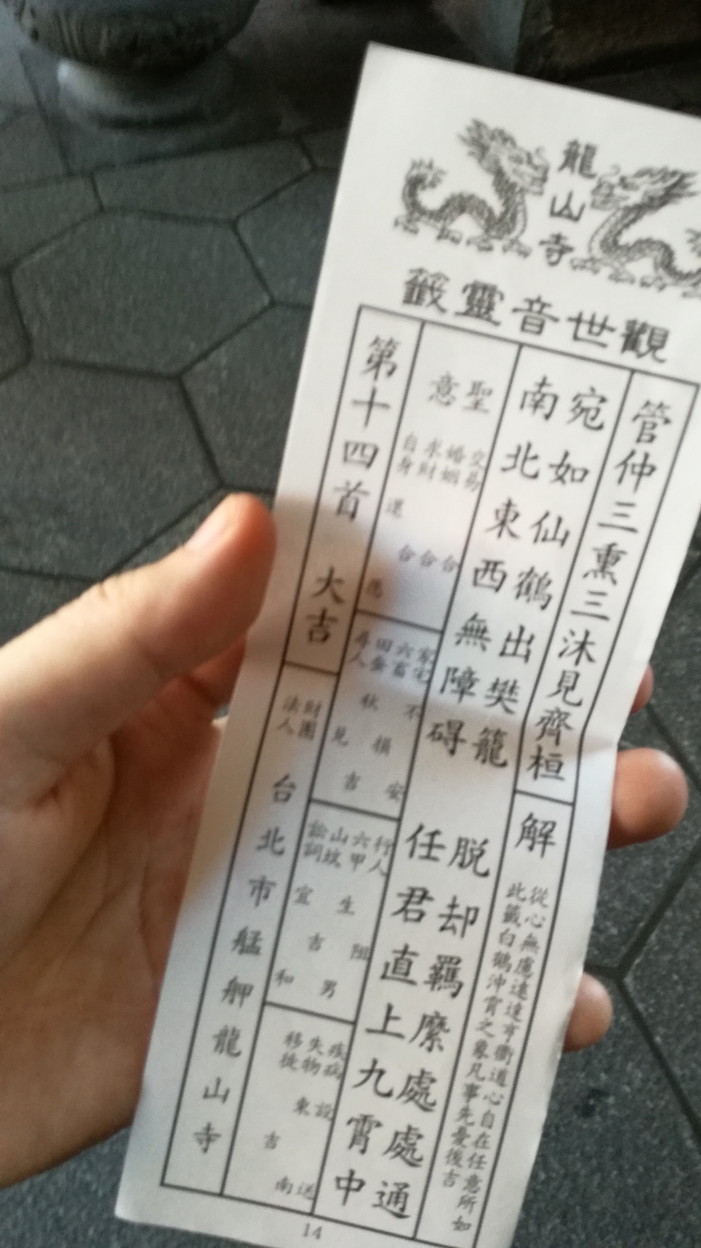 龍山寺
觀世音靈籤
管仲三熏三沐見齊桓
解
從心無慮遠達亨衢道心自在任意所如
此籤白鶴沖霄之象凡事先憂後吉
宛如仙鶴出樊籠
脱却羈縻處處通
南北東西無障碍
任君直上九霄中
聖意
交易 合
婚姻 合
求財 合
自身 還愿
家宅 不安
六畜 損
田蚕 秋吉
尋人 見
行人 阻
六甲 生男
山墳 吉
訟詞 宜和
疾病 設送
失物 東南
移徙 吉
第十四首
大吉
財團法人
台北市艋舺龍山寺
14